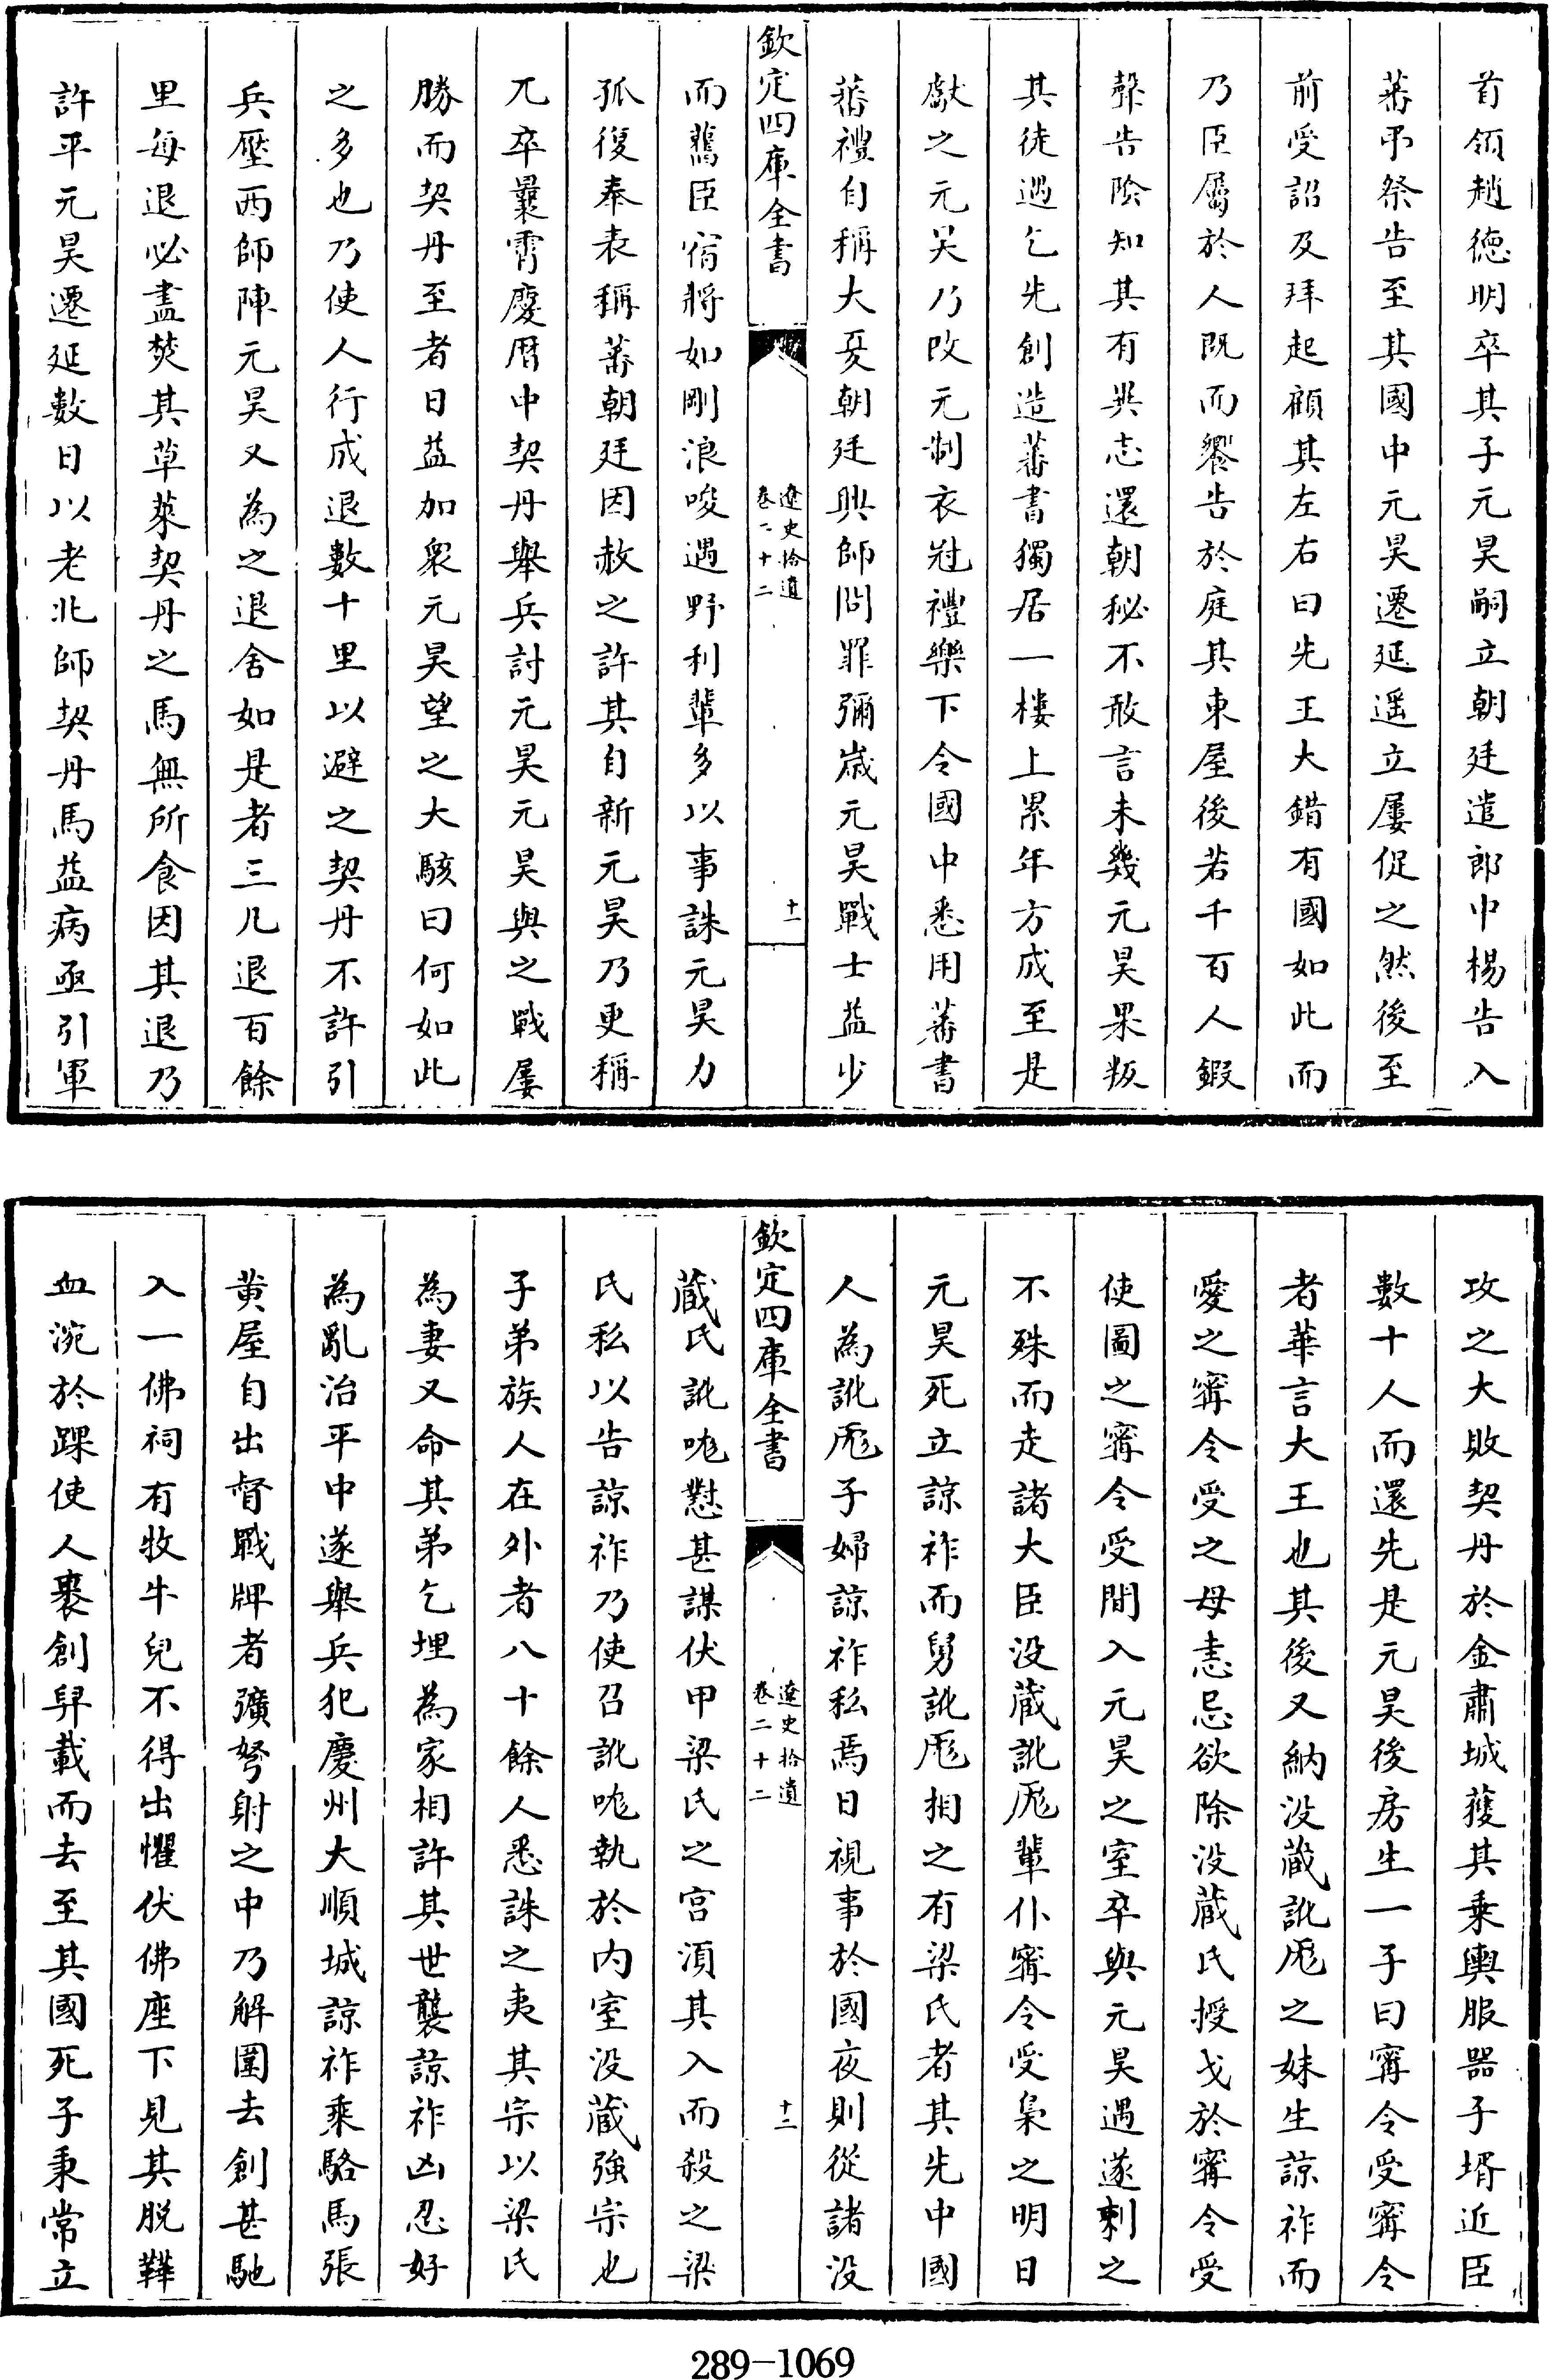 首領趙德明卒其子元昊嗣立朝廷遣郎中楊告入
蕃弔祭告至其國中元昊遷延遥立屢促之然後至
前受詔及拜起顧其左右曰先王大錯有國如此而
乃臣屬於人既而饗告於庭其東屋後若千百人鍜
聲告隂知其有異志還朝秘不敢言未幾元昊果叛
其徒遇乞先創造蕃書獨居一樓上累年方成至是
獻之元昊乃改元制衣冠禮樂下令國中悉用蕃書
蕃禮自稱大夏朝廷興師問罪彌歳元昊戰士益少
欽定四庫全書
遼史拾遺
卷二十二
十一
而舊臣宿將如剛浪唆遇野利輩多以事誅元昊力
孤復奉表稱蕃朝廷因赦之許其自新元昊乃更稱
兀卒曩霄慶厯中契丹舉兵討元昊元昊與之戰屢
勝而契丹至者日益加衆元昊望之大駭曰何如此
之多也乃使人行成退數十里以避之契丹不許引
兵壓西師陣元昊又為之退舍如是者三凡退百餘
里每退必盡焚其草萊契丹之馬無所食因其退乃
許平元昊遷延數日以老北師契丹馬益病亟引軍
攻之大敗契丹於金肅城獲其乗輿服器子壻近臣
數十人而還先是元昊後房生一子曰甯令受甯令
者華言大王也其後又納沒藏訛厖之妹生諒祚而
愛之甯令受之母恚忌欲除沒藏氏授戈於甯令受
使圖之甯令受間入元昊之室卒與元昊遇遂刺之
不殊而走諸大臣沒藏訛厖輩仆甯令受梟之明日
元昊死立諒祚而舅訛厖相之有梁氏者其先中國
人為訛厖子婦諒祚私焉日視事於國夜則從諸沒
欽定四庫全書
遼史拾遺
卷二十二
十二
藏氏訛咙懟甚謀伏甲梁氏之宫須其入而殺之梁
氏私以告諒祚乃使召訛咙執於内室沒藏強宗也
子弟族人在外者八十餘人悉誅之夷其宗以梁氏
為妻又命其弟乞埋為家相許其世襲諒祚凶忍好
為亂治平中遂舉兵犯慶州大順城諒祚乗駱馬張
黄屋自出督戰陴者彍弩射之中乃解圍去創甚馳
入一佛祠有牧牛兒不得出懼伏佛座下見其脱鞾
血涴於踝使人裹創舁載而去至其國死子秉常立
289-1069